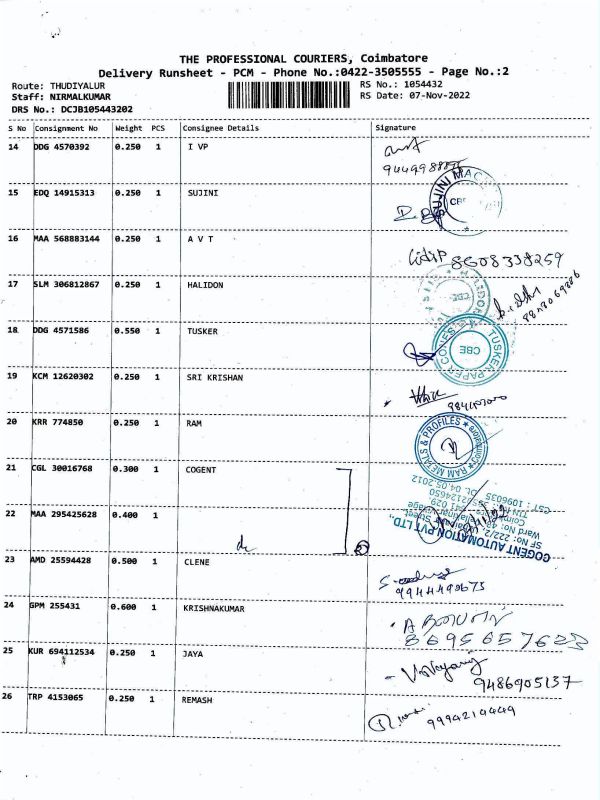 THE PROFESSIONAL COURIERS, Coimbatore
Delivery Runsheet - PCM - Phone No.:0422-3505555 - Page No.:2
Route: THUDIYALUR RS No.: 1054432
Staff: NIRMALKUMAR RS Date: 07-Nov-2022
DRS No.: DCJB105443202
S No Consignment No Weight PCS Consignee Details Signature
14 DDG 4570392 0.250 1 I VP
15 EDQ 14915313 0.250 1 SUJINI
16 MAA 568883144 0.250 1 A V T
8608338259
17 SLM 306812867 0.250 1 HALIDON
18 DDG 4571586 0.550 1 TUSKER
TUSKER PAPER CONES
CBE
19 KCM 12620302 0.250 1 SRI KRISHAN
20 KRR 774850 0.250 1 RAM
RAM METALS & PROFILES
21 CGL 30016768 0.300 1 COGENT
22 MAA 295425628 0.400 1
COGENT AUTOMATION PVT LTD.,
23 AMD 25594428 0.500 1 CLENE
9944490673
24 GPM 255431 0.600 1 KRISHNAKUMAR
8695657623
25 KUR 694112534 0.250 1 JAYA
9486905137
26 TRP 4153065 0.250 1 REMASH
9994214449